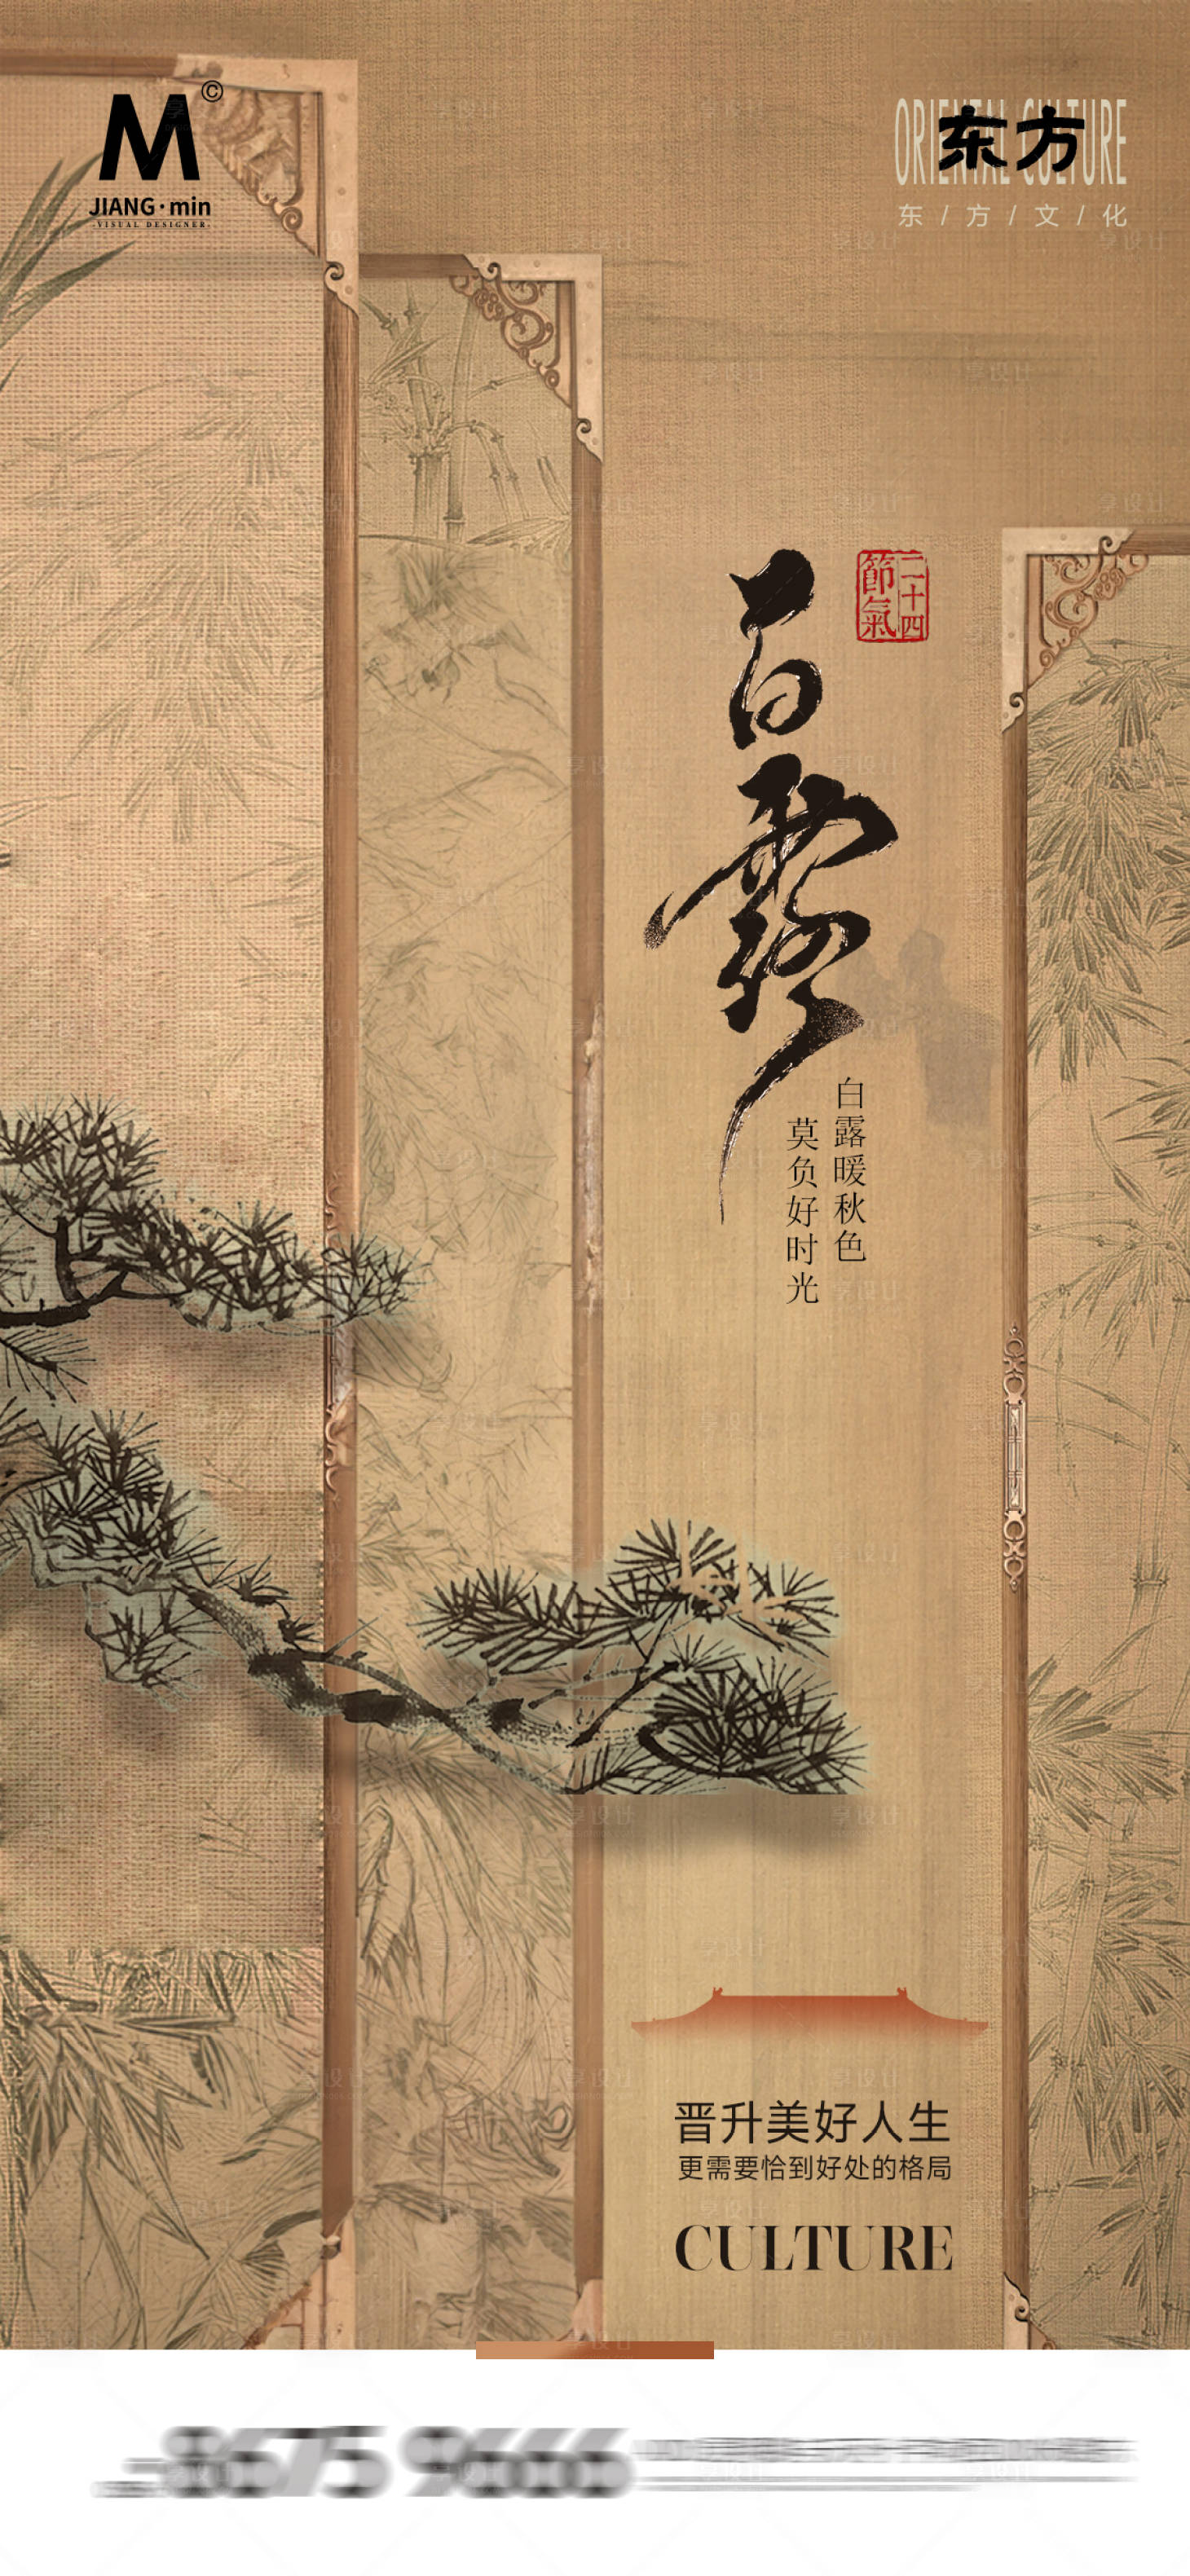 M©
JIANG·min
·VISUAL DESIGNER·
ORIENTAL CULTURE
东方
东 / 方 / 文 / 化
二十四
節氣
白露
白露暖秋色
莫负好时光
晋升美好人生
更需要恰到好处的格局
CULTURE
享设计